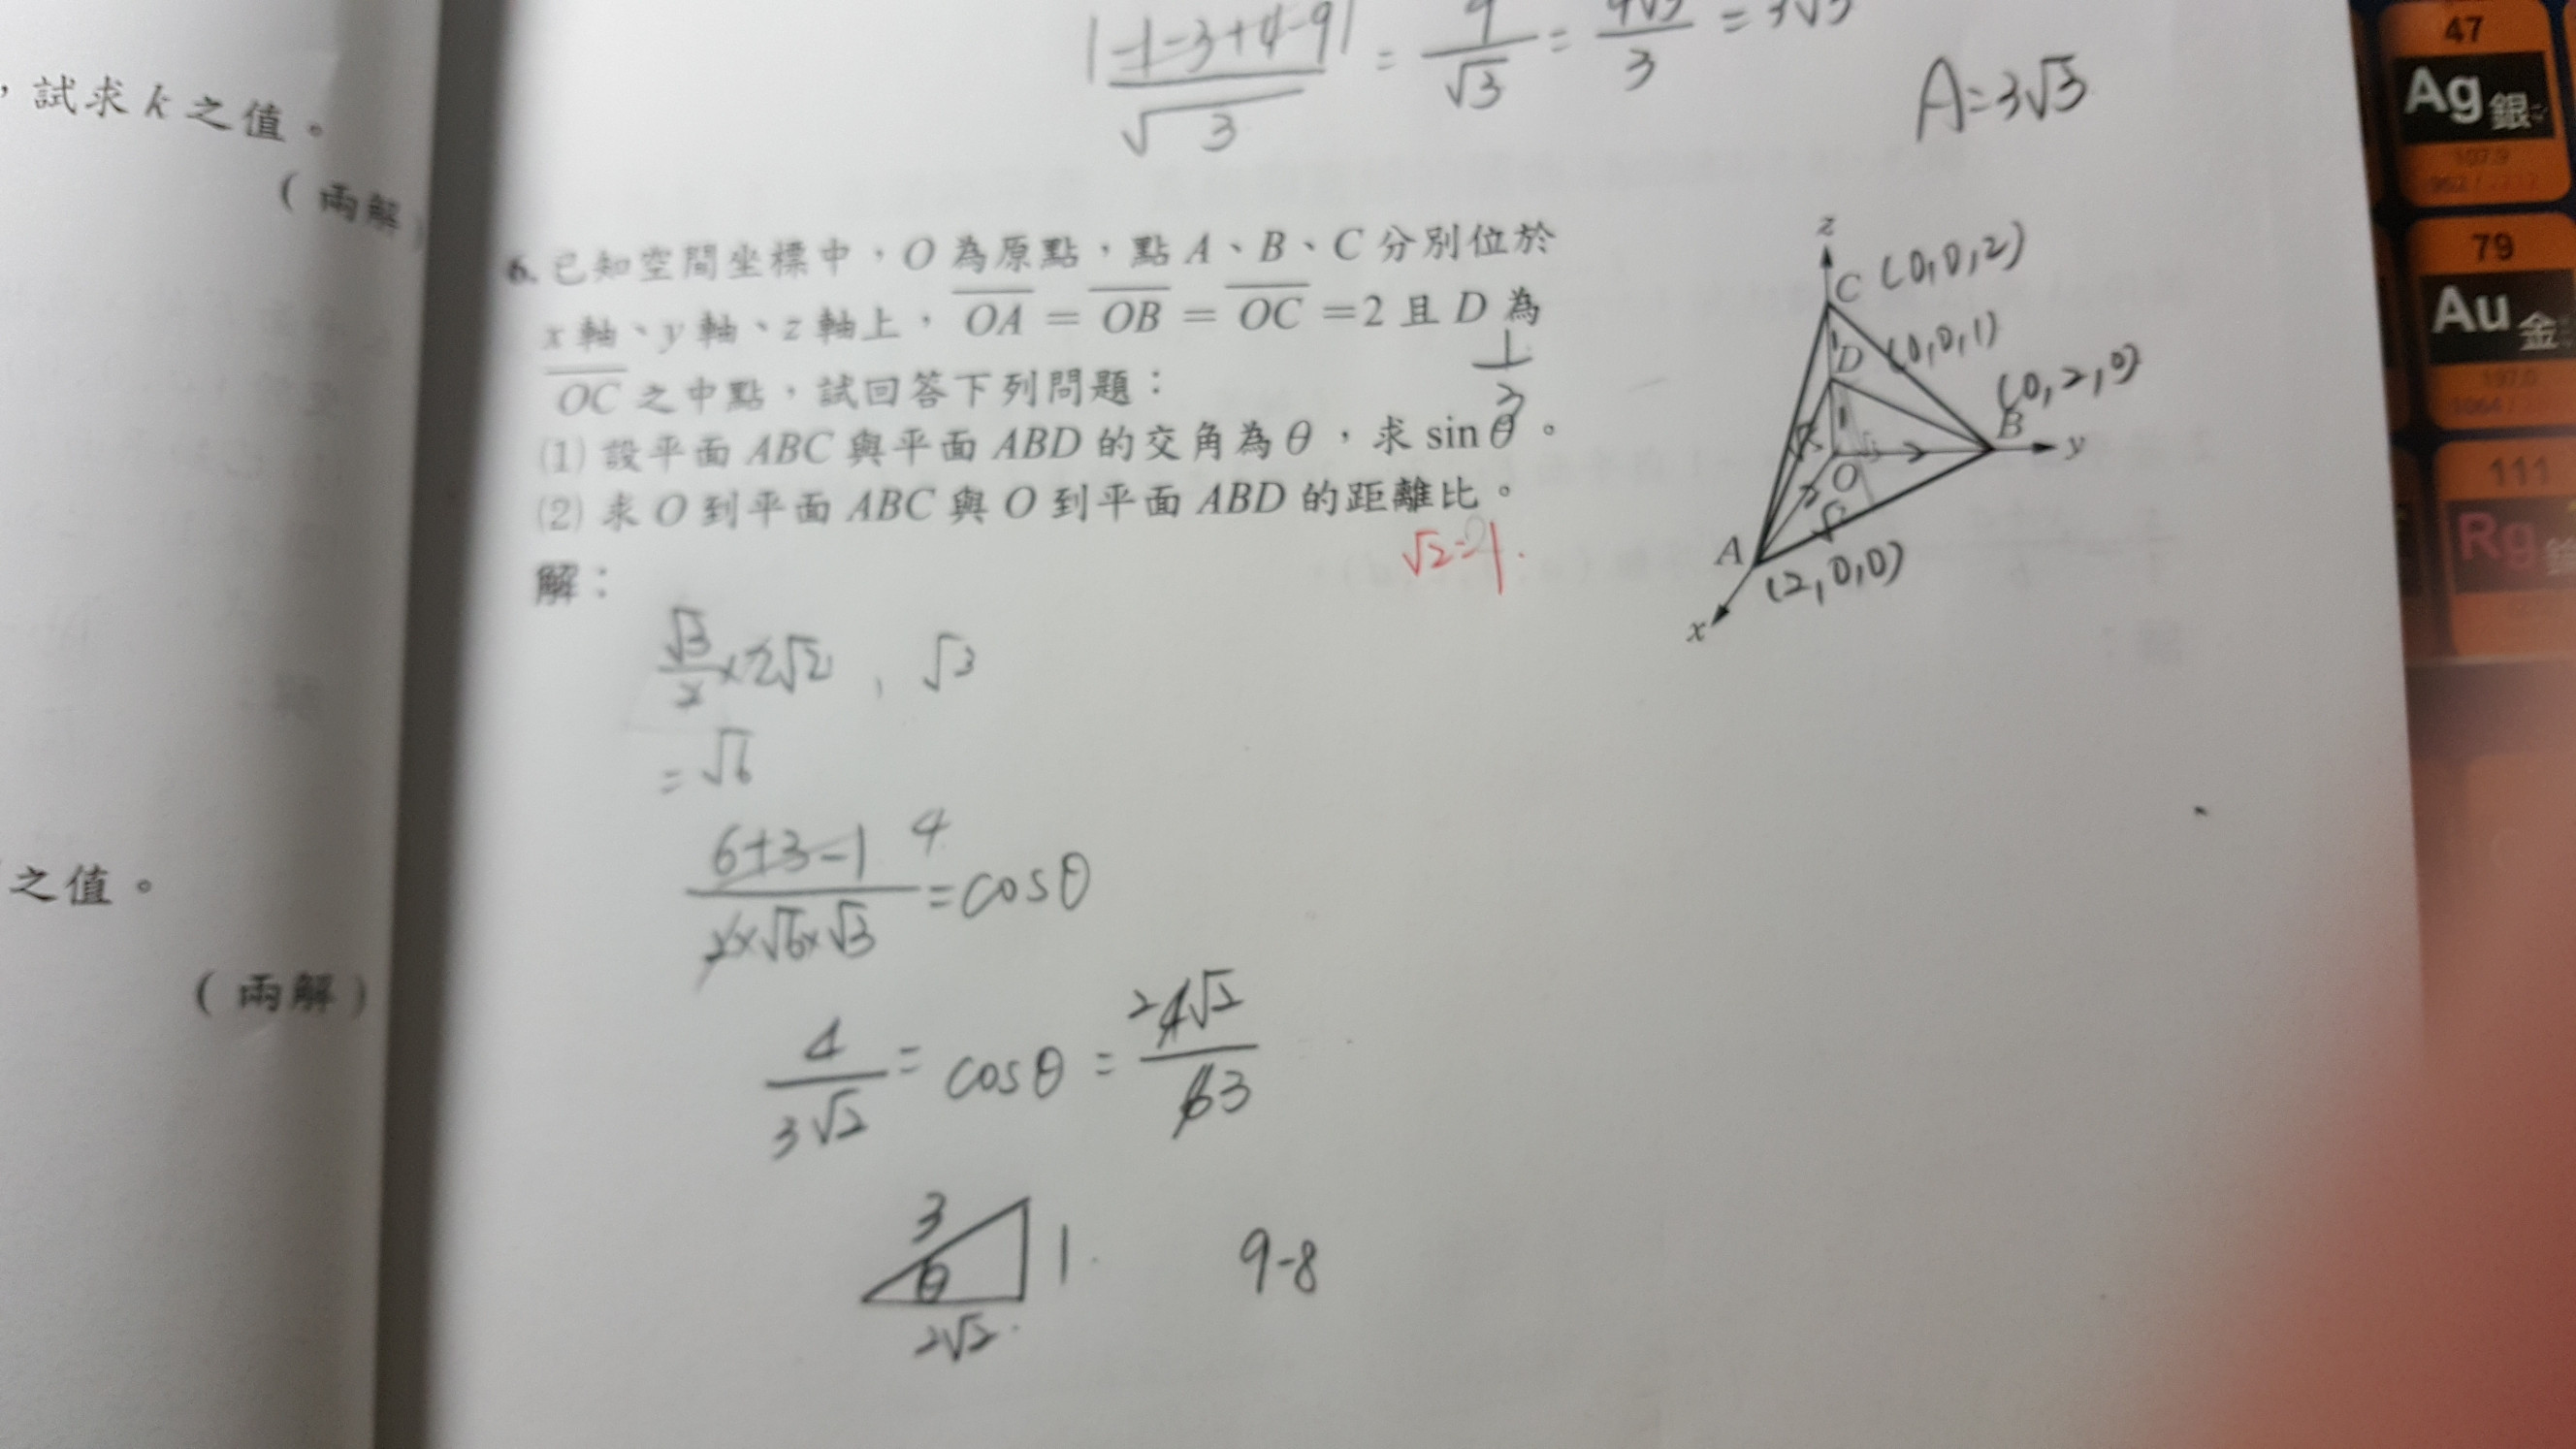 ，試求 k 之值。
(兩解)
之值。
(兩解)
|-1-3+4-9| / √3 = 9/√3 = 9√3/3 = 3√3
A=3√3
6. 已知空間坐標中，O 為原點，點 A、B、C 分別位於
x 軸、y 軸、z 軸上，OA = OB = OC =2 且 D 為
OC 之中點，試回答下列問題：
1/3
(1) 設平面 ABC 與平面 ABD 的交角為 θ，求 sin θ。
(2) 求 O 到平面 ABC 與 O 到平面 ABD 的距離比。
√2=1.
解：
z
C (0,0,2)
1
D (0,0,1)
1
(0,2,0)
B
y
O
√2
A
(2,0,0)
x
√3/2 ×2√2 , √3
= √6
6+3-1 4 / 2×√6×√3 = cosθ
4/3√2 = cosθ = 2 4√2 / 6 3
3
θ
1
2√2
9-8
47
Ag 銀
107.9
79
Au 金
1064
111
Rg